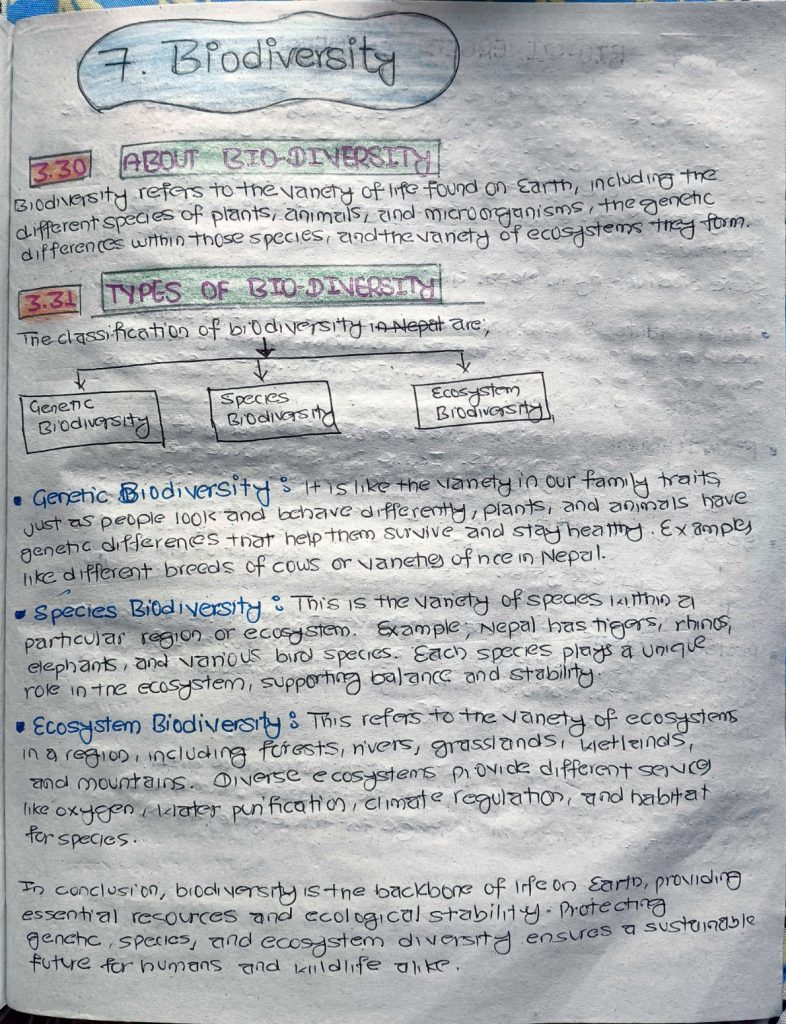 7. Biodiversity
3.30 ABOUT BIO-DIVERSITY
Biodiversity refers to the variety of life found on Earth, including the
different species of plants, animals, and microorganisms, the genetic
differences within those species, and the variety of ecosystems they form.
3.31 TYPES OF BIO-DIVERSITY
The classification of biodiversity in Nepal are;
Genetic Biodiversity
Species Biodiversity
Ecosystem Biodiversity
• Genetic Biodiversity : It is like the variety in our family traits,
just as people look and behave differently, plants, and animals have
genetic differences that help them survive and stay healthy. Examples
like different breeds of cows or varieties of rice in Nepal.
• Species Biodiversity : This is the variety of species within a
particular region or ecosystem. Example, Nepal has tigers, rhinos,
elephants, and various bird species. Each species plays a unique
role in the ecosystem, supporting balance and stability.
• Ecosystem Biodiversity : This refers to the variety of ecosystems
in a region, including forests, rivers, grasslands, wetlands,
and mountains. Diverse ecosystems provide different services
like oxygen, water purification, climate regulation, and habitat
for species.
In conclusion, biodiversity is the backbone of life on Earth, providing
essential resources and ecological stability. Protecting
genetic, species, and ecosystem diversity ensures a sustainable
future for humans and wildlife alike.